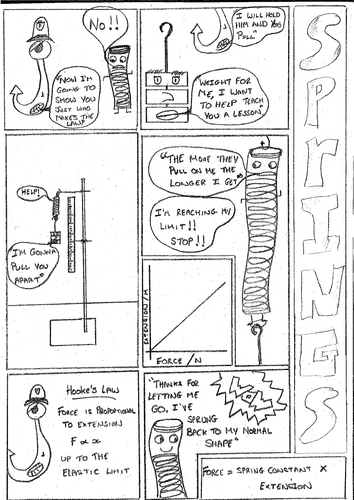 SPRINGS
No!!
"NOW I'M
GOING TO
SHOW YOU
JUST WHO
MAKES THE
LAW!"
"I WILL HOLD
HIM AND YOU
PULL"
"WEIGHT FOR
ME, I WANT
TO HELP TEACH
YOU A LESSON."
HELP!
I'M GONNA
PULL YOU
APART"
"THE MORE THEY
PULL ON ME THE
LONGER I GET"
I'M REACHING MY
LIMIT!!
STOP!!
EXTENSION/M
FORCE/N
Hooke's Law
FORCE IS PROPORTIONAL
TO EXTENSION
F ∝ x
UP TO THE
ELASTIC LIMIT
"THANKS FOR
LETTING ME
GO, I'VE
SPRUNG
BACK TO MY NORMAL
SHAPE"
FORCE = SPRING CONSTANT ×
EXTENSION